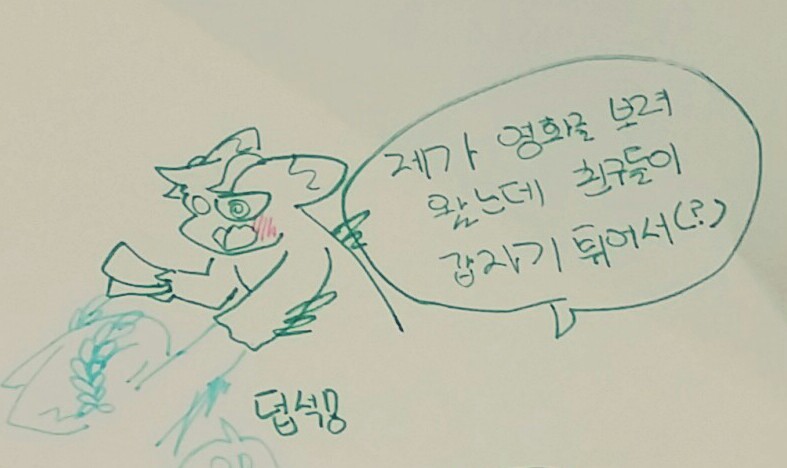 제가 영화를 보려
왔는데 친구들이
갑자기 튀어서(?)
덥석몽